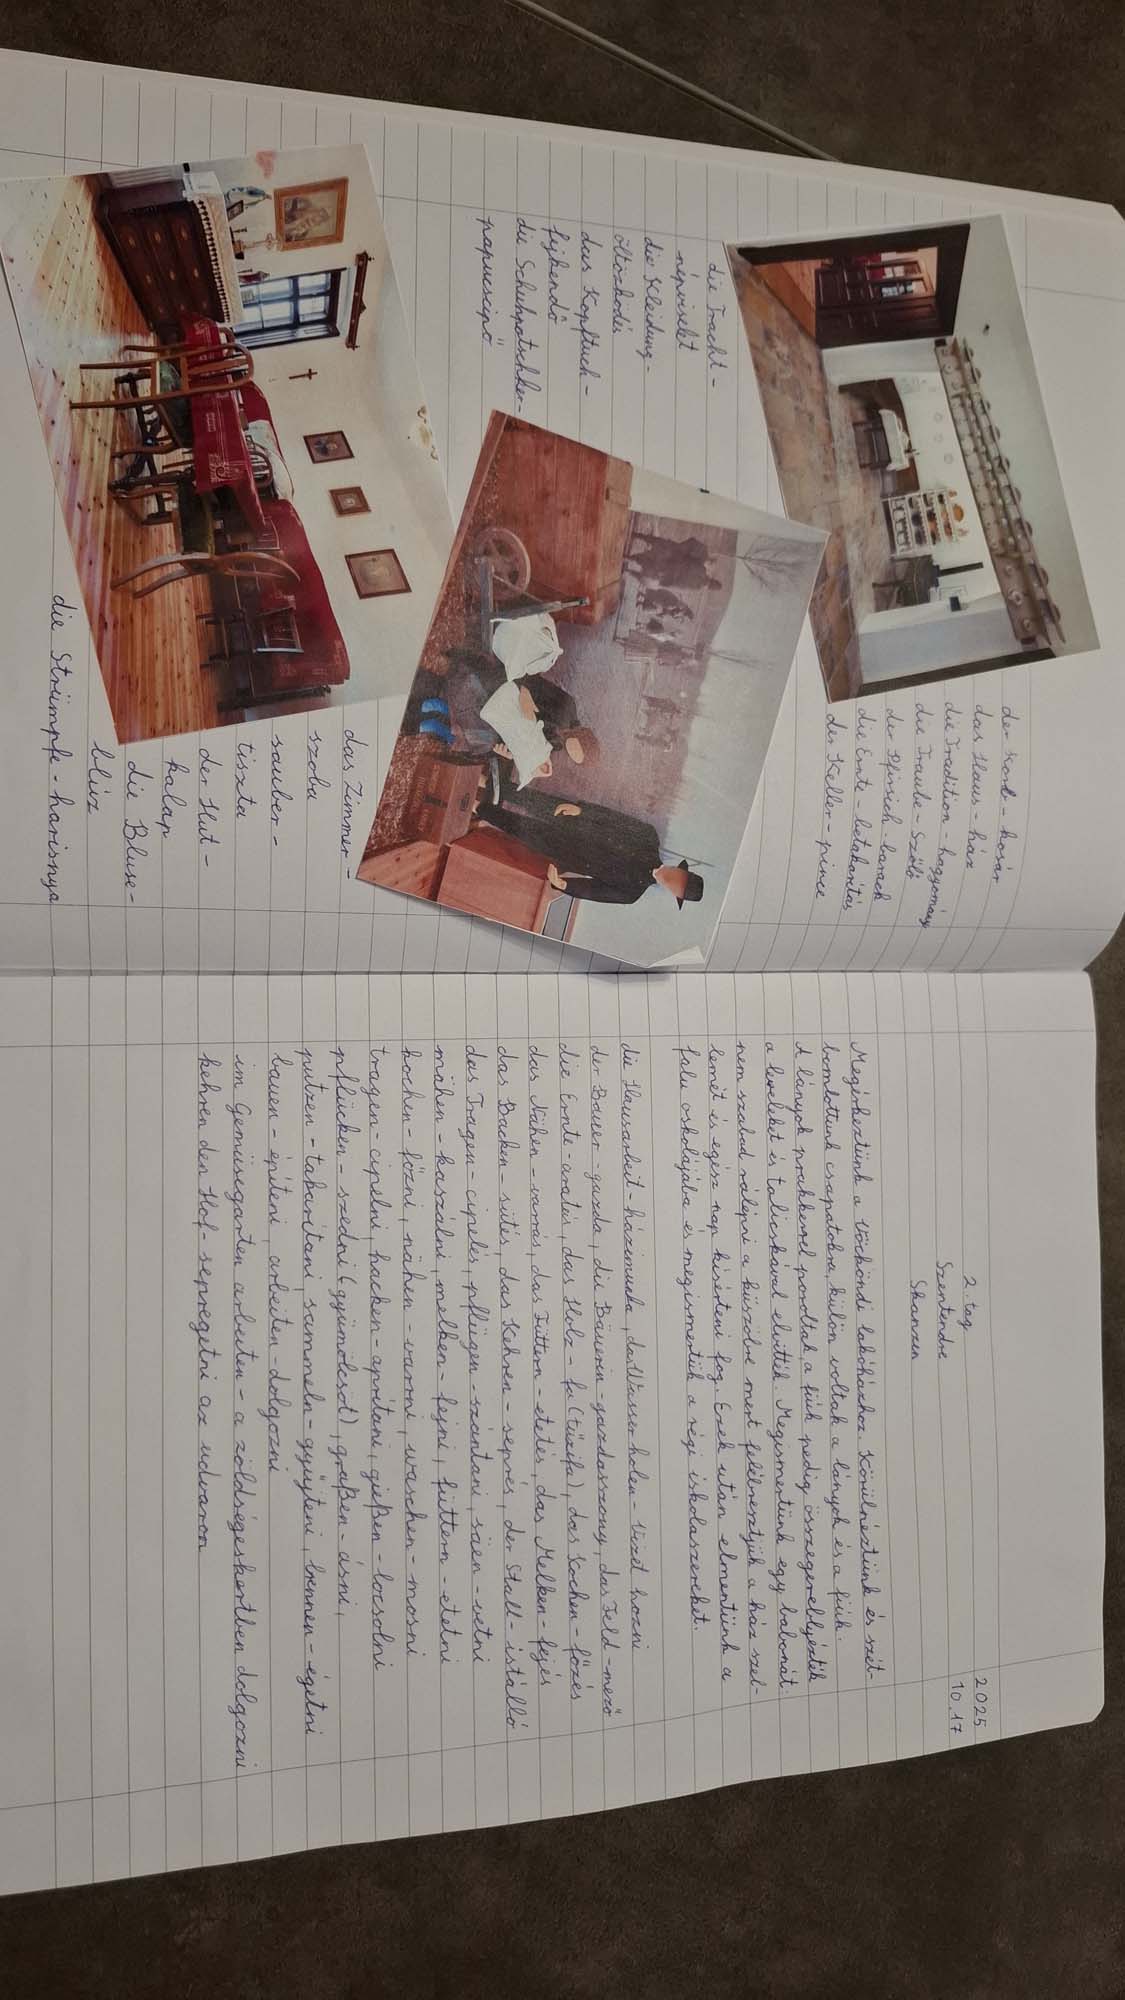 der Korb - kosár
das Haus - ház
die Tradition - hagyomány
die Traube - Szőlő
der Pfirsich - barack
die Ernte - betakarítás
der Keller - pince
die Tracht -
népviselet
die Kleidung -
öltözködés
das Kopftuch -
fejkendő
die Schuhpatschker -
papucscipő
das Zimmer -
szoba
sauber -
tiszta
der Hut -
kalap
die Bluse -
blúz
die Strümpfe - harisnya
2025
10.17
2. tag
Szentendre
Skanzen
Megérkeztünk a vöcköndi lakóházhoz. Körülnéztünk és szét-
bomlottunk csapatokra, külön voltak a lányok és a fiúk.
A lányok prakkerrel poroltak, a fiúk pedig összegereblyézték
a leveleket és talicskával elvitték. Megismertünk egy babonát:
nem szabad rálépni a küszöbre mert felébresztjük a ház szel-
lemét és egész nap kísérteni fog. Ezek után elmentünk a
falu oskolájába és megismertük a régi iskolaszereket.
die Hausarbeit - házimunka, das Wasser holen - vizet hozni
der Bauer - gazda, die Bäuerin - gazdasszony, das Feld - mező
die Ernte - aratás, das Holz - fa (tűzifa), das Kochen - főzés
das Nähen - varrás, das Füttern - etetés, das Melken - fejés
das Backen - sütés, das Kehren - seprés, der Stall - istálló
das Tragen - cipelés, pflügen - szántani, säen - vetni
mähen - kaszálni, melken - fejni, füttern - etetni
kochen - főzni, nähen - varrni, waschen - mosni
tragen - cipelni, hacken - aprítani, gießen - locsolni
pflücken - szedni (gyümölcsöt), graßen - ásni,
putzen - takarítani, sammeln - gyűjteni, brennen - égetni
bauen - építeni, arbeiten - dolgozni
im Gemüsegarten arbeiten - a zöldségeskertben dolgozni
kehren den Hof - sepregetni az udvaron